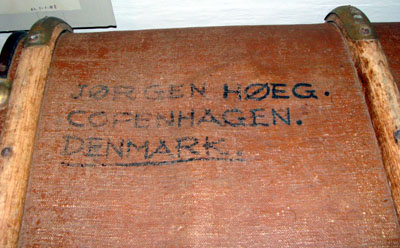 JØRGEN HØEG.
COPENHAGEN.
DENMARK.